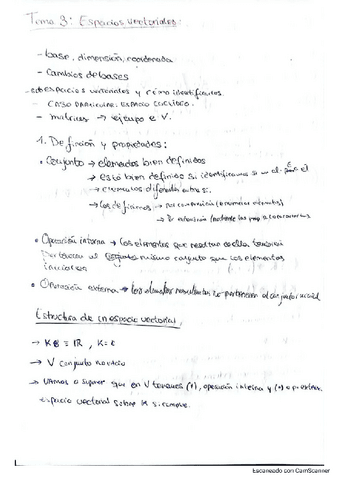 Tema 3: Espacios vectoriales:
- base, dimensión, coordenada
- Cambios de bases
- subespacios vectoriales y cómo identificarlos.
- CASO PARTICULAR: ESPACIO EUCLÍDEO.
- matrices → ejemplo e V.
1. Definición y propiedades:
• Conjunto → elementos bien definidos
→ está bien definido si identificamos si un el
elementos diferentes entre sí
→ Los definimos → por enumeración (enumerar elementos)
→ extensión
• Operación interna → Los elementos que resultan de ella también
pertenecen al mismo conjunto que los elementos
iniciales
• Operación externa → Los resultantes no pertenecen al conjunto inicial
Estructura de un espacio vectorial
→ K = ℝ, K = ℂ
→ V conjunto no vacío
→ Vamos a suponer que en V tenemos (+), operación interna y (•) op. externa.
Espacio vectorial sobre K si cumple.
Escaneado con CamScanner